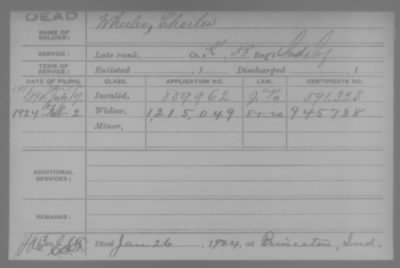 DEAD
NAME OF SOLDIER: Wheeler, Charles
SERVICE: Late rank, Co. K, 58 Reg't Ind. Inf.
TERM OF SERVICE: Enlisted , 1 Discharged , 1
DATE OF FILING. CLASS. APPLICATION NO. LAW. CERTIFICATE NO.
July 17 Invalid, 859,962 591,323
1924 Feb 2 Widow, 1,215,049 945738
Minor,
ADDITIONAL SERVICES:
REMARKS:
Died Jan 26, 1924, at Princeton, Ind.